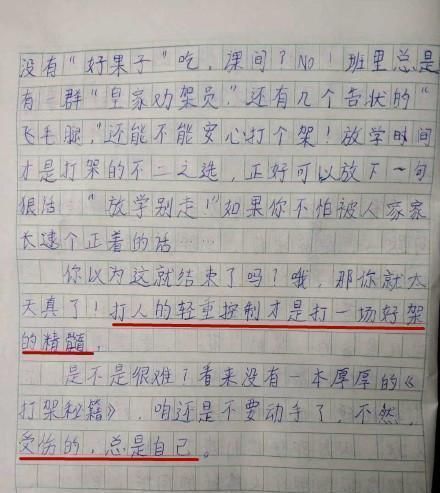 没有“好果子”吃，课间？No！班里总是
有一群“皇家劝架员，”还有几个告状的“
飞毛腿，”还能不能安心打个架！放学时间
才是打架的不二之选，正好可以放下一句
狠话“放学别走！”如果你不怕被人家家
长逮个正着的话……
你以为这就结束了吗？哦，那你就太
天真了！打人的轻重控制才是打一场好架
的精髓，
是不是很难？看来没有一本厚厚的《
打架秘籍》，咱还是不要动手了，不然，
受伤的，总是自己。